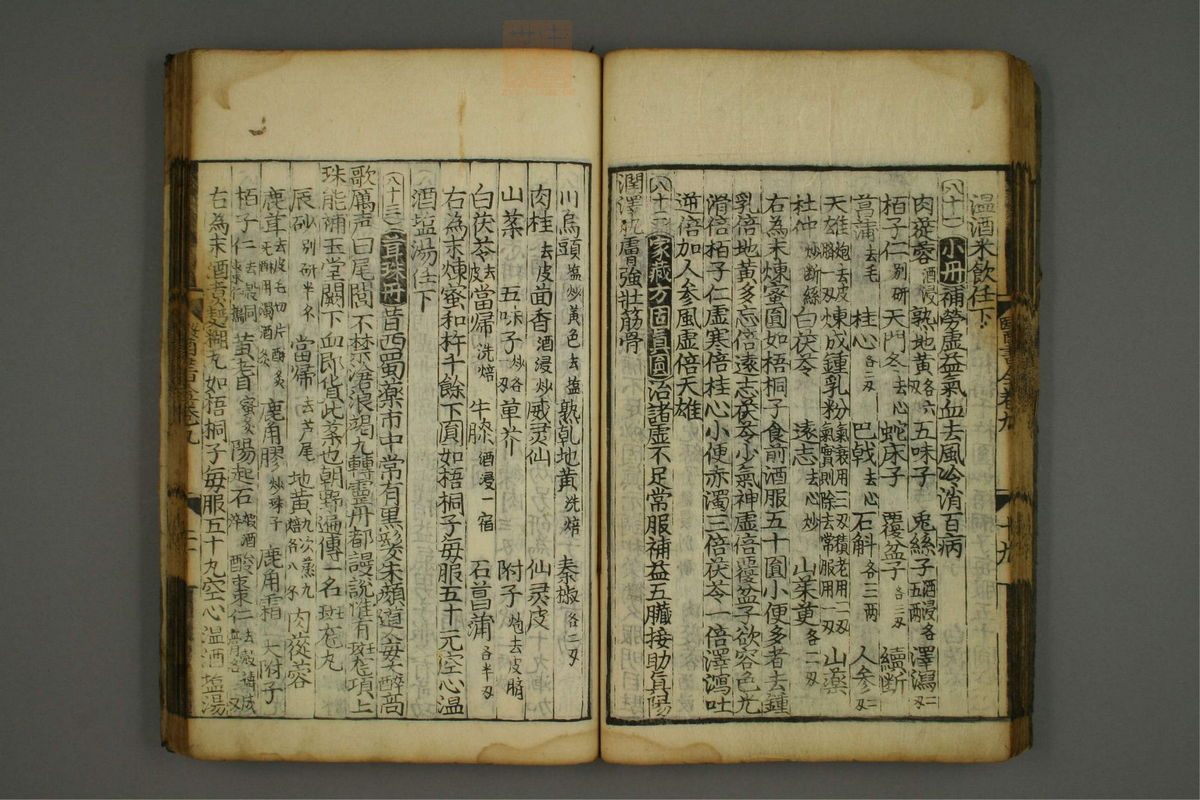 溫酒米飲任下
八十一 小丹 補勞虛益氣血去風冷消百病
肉蓯蓉酒浸 熟地黃各六刄 五味子 兔絲子酒浸各五兩 澤瀉二刄
栢子仁別研 天門冬去心 蛇床子 覆盆子各三刄 續斷
菖蒲去毛 桂心各二刄 巴戟去心 石斛各三兩 人参二刄
天雄炮去皮膓一刄 煉成鍾乳粉氣衰用三刄積老用一刄氣實則除去常服用一刄 山藥
杜仲炒断絲 白茯苓 遠志去心炒 山茱萸各二刄
右為末煉蜜圎如梧桐子食前酒服五十圎小便多者去鍾
乳倍地黃多忘倍遠志茯苓少氣神虛倍覆盆子欲容色光
滑倍栢子仁虛寒倍桂心小便赤濁三倍茯苓一倍澤瀉吐
逆倍加人参風虛倍天雄
八十二 家藏方固真圎 治諸虛不足常服補益五臟接助真陽
潤澤肌膚強壯筋骨
川烏頭塩炒黃色去塩 熟乹地黃洗焙 秦椒各二刄
肉桂去皮 茴香酒浸炒 威灵仙 仙灵皮
山藥 五味子炒各一刄 萆薢 附子炮去皮臍
白茯苓去皮 當歸洗焙 牛膝酒浸一宿 石菖蒲各半刄
右為末煉蜜和杵千餘下圎如梧桐子每服五十元空心温
酒塩湯任下
八十三 茸珠丹 昔西蜀藥市中常有黑髮朱顏道人每大醉高
歌厲声曰尾閭不禁滄浪竭九轉靈丹都謾說惟有斑龍頂上
珠能補玉堂闕下血即貨此藥也朝野遍傳一名斑龍丸
辰砂別研半刄 當歸去芦尾 地黃九次蒸九焙各八刄 肉蓯蓉
鹿茸去皮毛切片酥炙無酥用濁酒炙 鹿角膠炒珠子 鹿角霜 大附子
栢子仁去殼 黃耆蜜炙 陽起石煅酒淬 酸棗仁去殼
右為末酒煮麪糊丸如梧桐子每服五十丸空心温酒塩湯